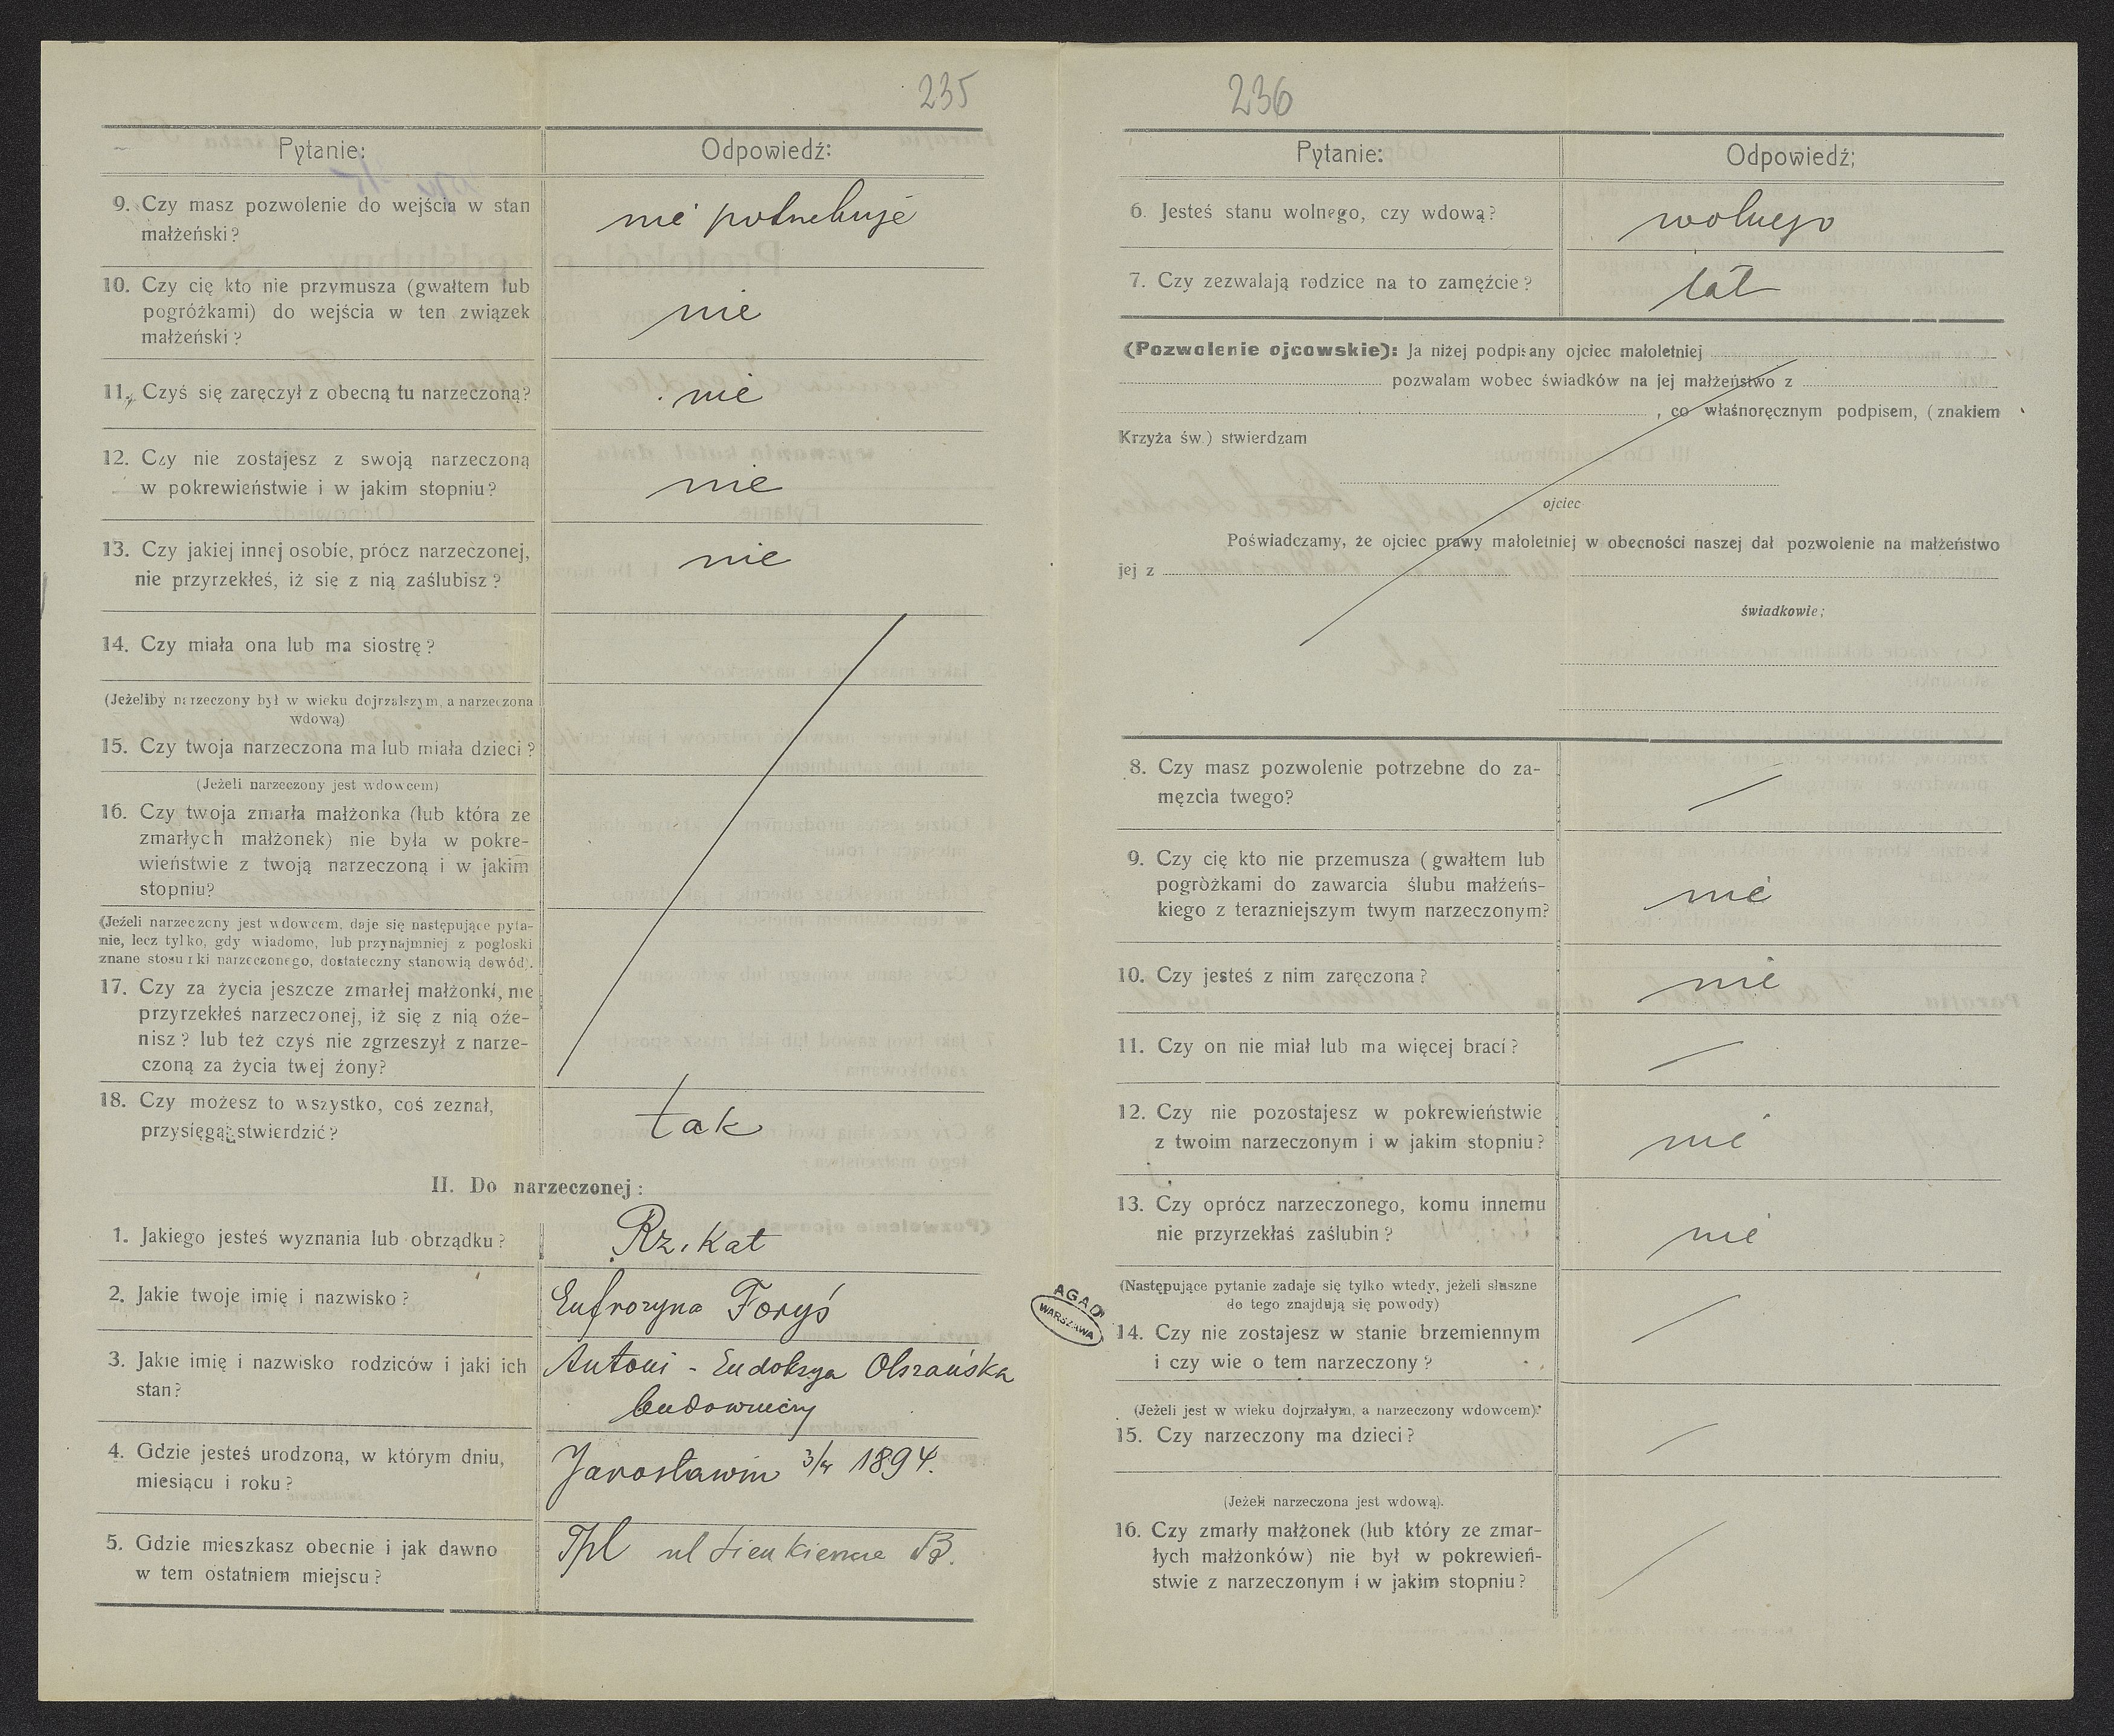 235
Pytanie:
Odpowiedź:
9. Czy masz pozwolenie do wejścia w stan
małżeński?
nie potrzebuje
10. Czy cię kto nie przymusza (gwałtem lub
pogróżkami) do wejścia w ten związek
małżeński?
nie
11. Czyś się zaręczył z obecną tu narzeczoną?
nie
12. Czy nie zostajesz z swoją narzeczoną
w pokrewieństwie i w jakim stopniu?
nie
13. Czy jakiej innej osobie, prócz narzeczonej,
nie przyrzekłeś, iż się z nią zaślubisz?
nie
14. Czy miała ona lub ma siostrę?
(Jeżeliby narzeczony był w wieku dojrzalszym, a narzeczona
wdową)
15. Czy twoja narzeczona ma lub miała dzieci?
(Jeżeli narzeczony jest wdowcem)
16. Czy twoja zmarła małżonka (lub która ze
zmarłych małżonek) nie była w pokre-
wieństwie z twoją narzeczoną i w jakim
stopniu?
(Jeżeli narzeczony jest wdowcem, daje się następujące pyta-
nie, lecz tylko, gdy wiadomo, lub przynajmniej z pogłoski
znane stosunki narzeczonego, dostateczny stanowią dowód).
17. Czy za życia jeszcze zmarłej małżonki, nie
przyrzekłeś narzeczonej, iż się z nią oże-
nisz? lub też czyś nie zgrzeszył z narze-
czoną za życia twej żony?
18. Czy możesz to wszystko, coś zeznał,
przysięgą stwierdzić?
tak
II. Do narzeczonej:
1. Jakiego jesteś wyznania lub obrządku?
Rz. Kat
2. Jakie twoje imię i nazwisko?
Eufrozyna Foryś
3. Jakie imię i nazwisko rodziców i jaki ich
stan?
Antoni - Eudoksya Olszańska
budowniczy
4. Gdzie jesteś urodzoną, w którym dniu,
miesiącu i roku?
Jarosławiu 1894.
5. Gdzie mieszkasz obecnie i jak dawno
w tem ostatniem miejscu?
Tpl ul
236
Pytanie:
Odpowiedź;
6. Jesteś stanu wolnego, czy wdową?
wolnego
7. Czy zezwalają rodzice na to zamęźcie?
(Pozwolenie ojcowskie): Ja niżej podpisany ojciec małoletniej
pozwalam wobec świadków na jej małżeństwo z
, co właśnoręcznym podpisem, (znakiem
Krzyża św.) stwierdzam
ojciec
Poświadczamy, że ojciec prawy małoletniej w obecności naszej dał pozwolenie na małżeństwo
jej z
świadkowie;
8. Czy masz pozwolenie potrzebne do za-
męzcia twego?
9. Czy cię kto nie przemusza (gwałtem lub
pogróżkami do zawarcia ślubu małżeńs-
kiego z terazniejszym twym narzeczonym?
nie
10. Czy jesteś z nim zaręczona?
nie
11. Czy on nie miał lub ma więcej braci?
12. Czy nie pozostajesz w pokrewieństwie
z twoim narzeczonym i w jakim stopniu?
nie
13. Czy oprócz narzeczonego, komu innemu
nie przyrzekłaś zaślubin?
nie
(Następujące pytanie zadaje się tylko wtedy, jeżeli słuszne
do tego znajdują się powody)
14. Czy nie zostajesz w stanie brzemiennym
i czy wie o tem narzeczony?
(Jeżeli jest w wieku dojrzałym, a narzeczony wdowcem).
15. Czy narzeczony ma dzieci?
(Jeżeli narzeczona jest wdową).
16. Czy zmarły małżonek (lub który ze zmar-
łych małżonków) nie był w pokrewień-
stwie z narzeczonym i w jakim stopniu?
AGAD
WARSZAWA